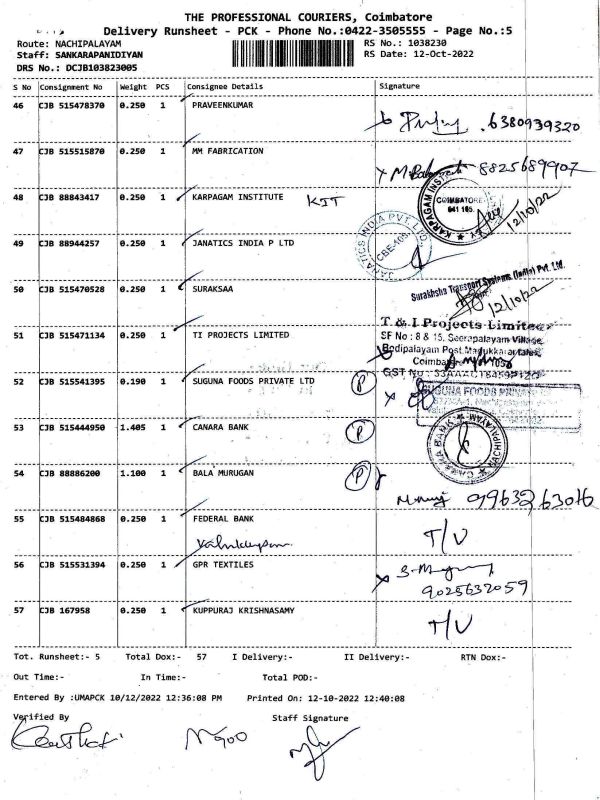 THE PROFESSIONAL COURIERS, Coimbatore
Delivery Runsheet - PCK - Phone No.:0422-3505555 - Page No.:5
Route: NACHIPALAYAM RS No.: 1038230
Staff: SANKARAPANIDIYAN RS Date: 12-Oct-2022
DRS No.: DCJB103823005
S No Consignment No Weight PCS Consignee Details Signature
46 CJB 515478370 0.250 1 PRAVEENKUMAR 6380939320
47 CJB 515515870 0.250 1 MM FABRICATION 8825689907
48 CJB 88843417 0.250 1 KARPAGAM INSTITUTE KIT
KARPAGAM INSTI
COIMBATORE
641 105.
12/10/22
49 CJB 88944257 0.250 1 JANATICS INDIA P LTD
JANATICS INDIA PVT LTD.
CBE-105
50 CJB 515470528 0.250 1 SURAKSAA
Surakhsha Transport Systems (India) Pvt. Ltd.
12/10/22
51 CJB 515471134 0.250 1 TI PROJECTS LIMITED
T & I Projects Limited
SF No : 8 & 15, Seerapalayam Village
Bodipalayam Post
52 CJB 515541395 0.190 1 SUGUNA FOODS PRIVATE LTD P
SUGUNA FOODS PRIVATE
53 CJB 515444950 1.405 1 CANARA BANK P
CANARA BANK
54 CJB 88886200 1.100 1 BALA MURUGAN P
9963263016
55 CJB 515484868 0.250 1 FEDERAL BANK T/V
56 CJB 515531394 0.250 1 GPR TEXTILES
9025632059
57 CJB 167958 0.250 1 KUPPURAJ KRISHNASAMY T/V
Tot. Runsheet:- 5 Total Dox:- 57 I Delivery:- II Delivery:- RTN Dox:-
Out Time:- In Time:- Total POD:-
Entered By :UMAPCK 10/12/2022 12:36:08 PM Printed On: 12-10-2022 12:40:08
Verified By Staff Signature